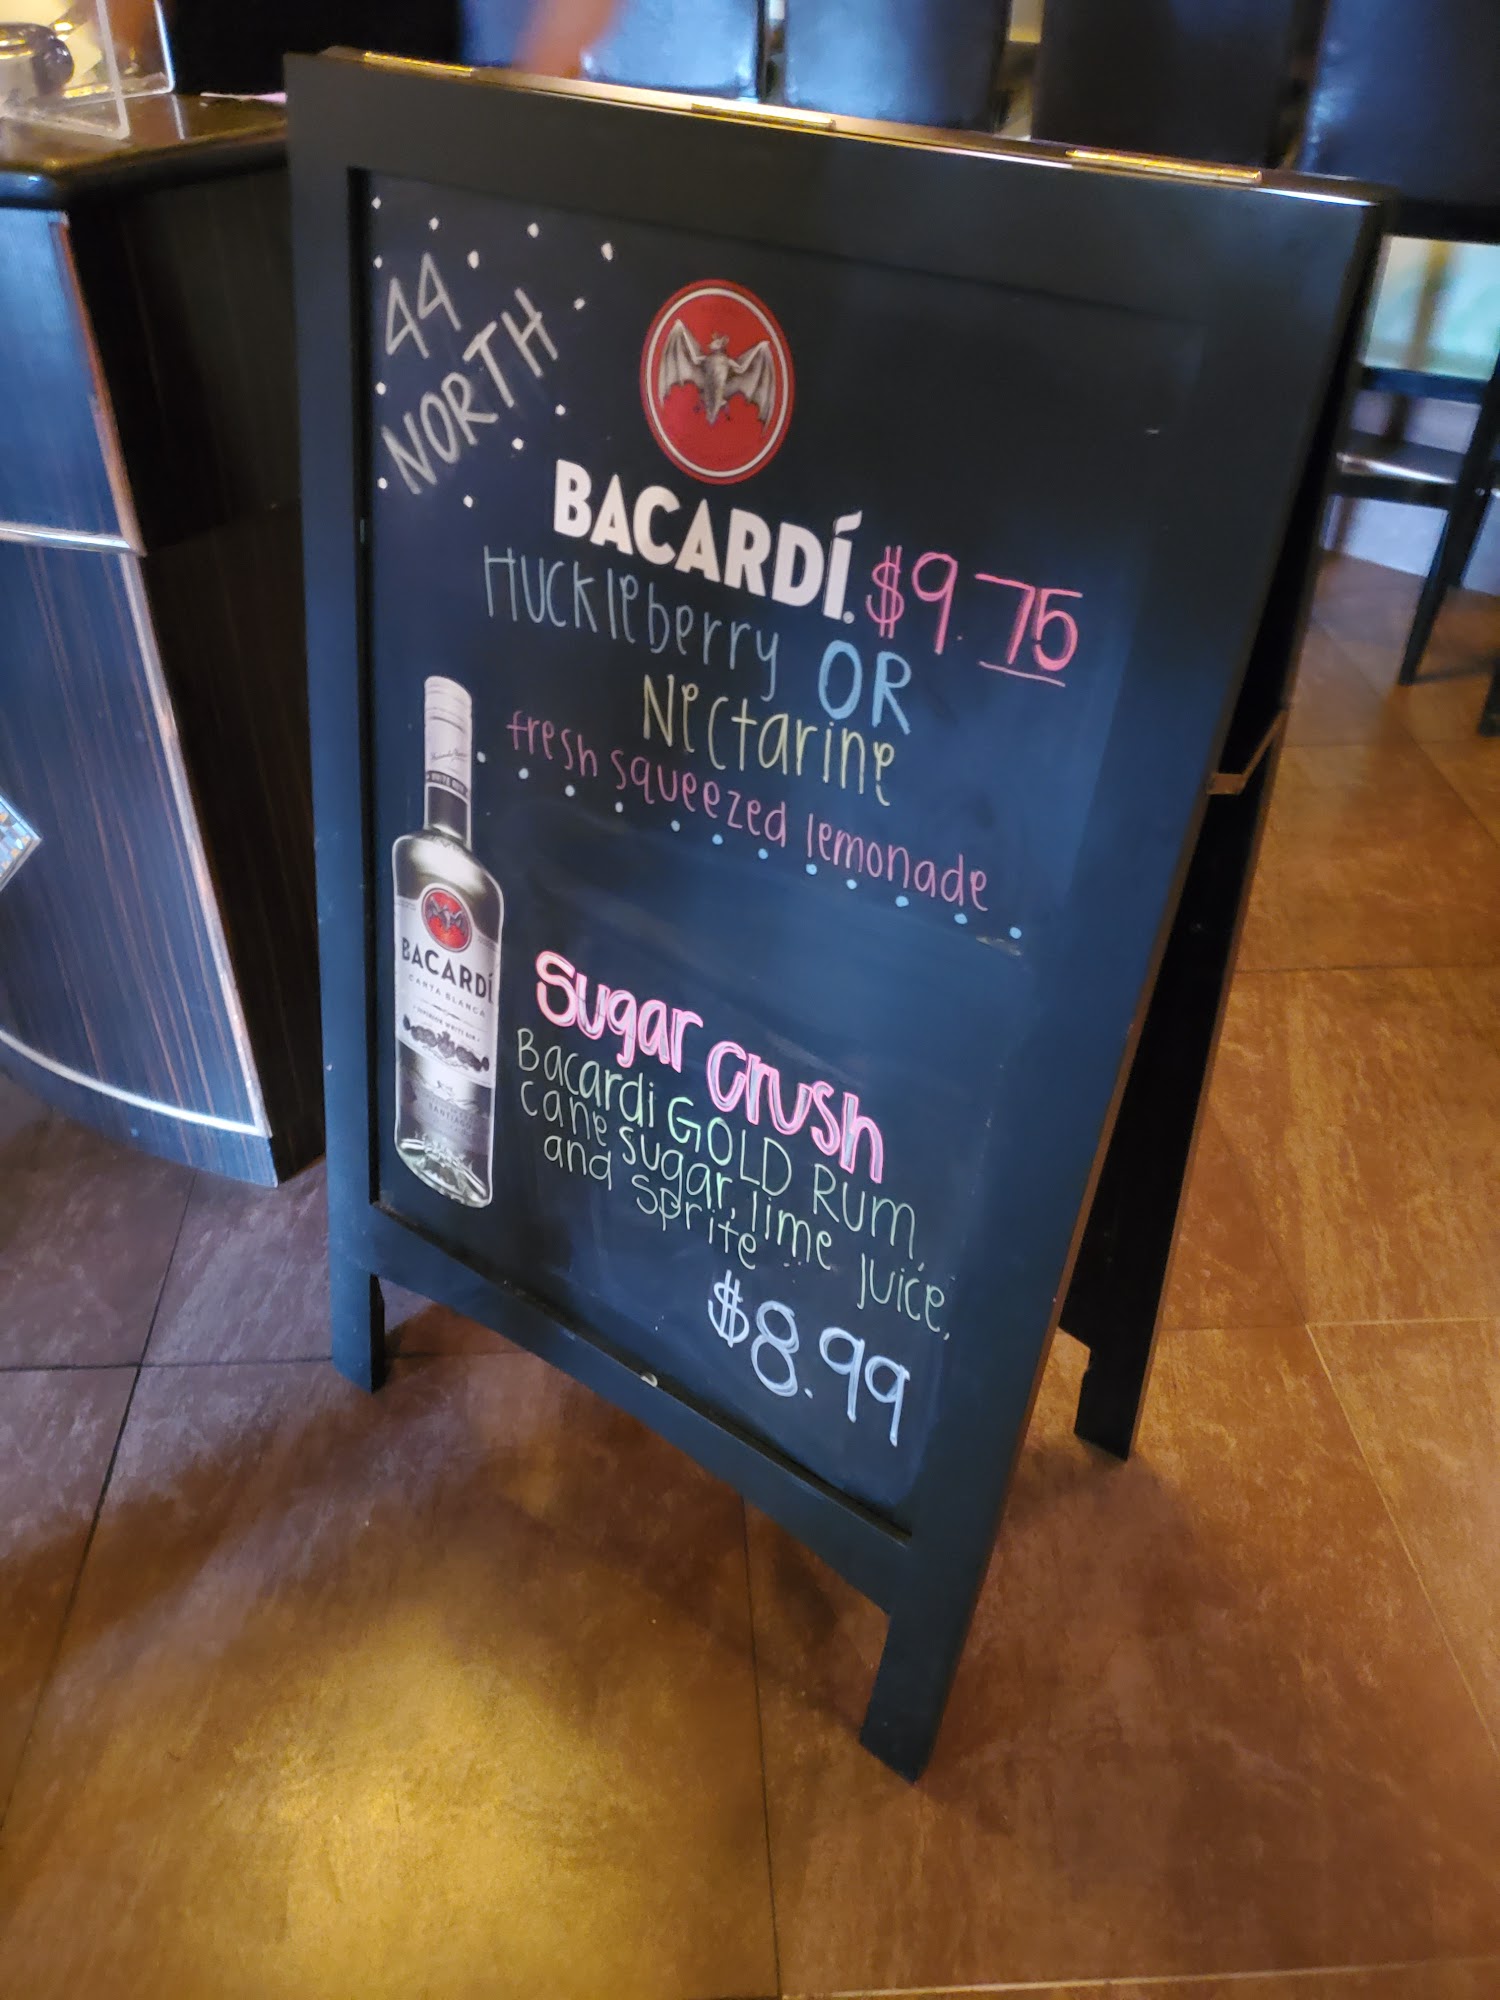 44
NORTH
BACARDÍ. $9.75
Huckleberry OR
Nectarine
fresh squeezed lemonade
BACARDÍ
CARTA BLANCA
SUPERIOR WHITE RUM
Sugar Crush
Bacardi GOLD Rum,
Cane sugar, lime juice,
and Sprite
$8.99